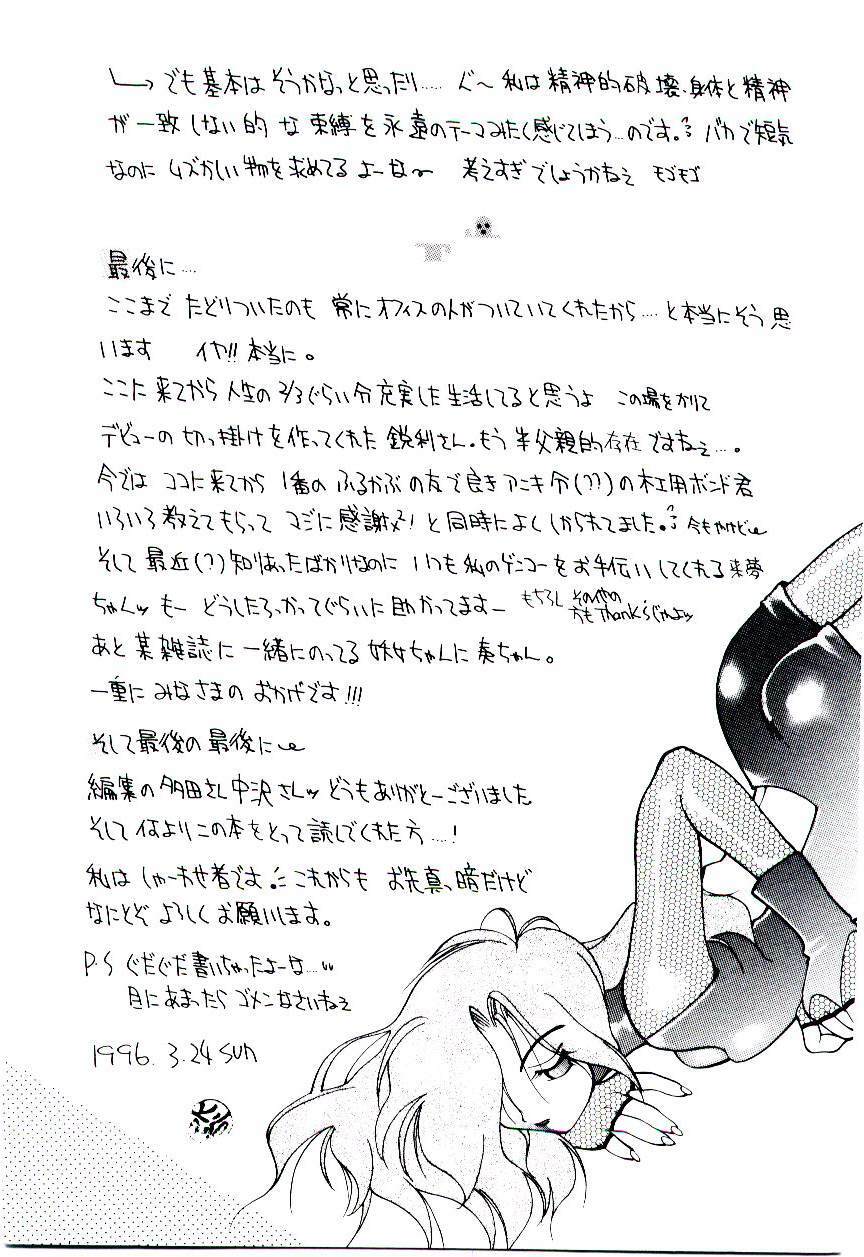 でも基本はそうかなっと思ったり…… ぐ〜私は精神的破壊、身体と精神
が一致しない的な束縛を永遠のテーマみたく感じてしまう…のです。バカで短気
なのにムズかしい物を求めてるよーな〜 考えすぎでしょうかねえ モゴモゴ
最後に…
ここまでたどりついたのも 常にオフィスの人がついていてくれたから……と本当にそう思
います イヤ!!本当に。
ここに来てから人生の2/3ぐらい分充実した生活してると思うよ この場をかりて
デビューの切っ掛けを作ってくれた鋭利さん。もう半父親的存在ですねぇ…。
今では ココに来てから 1番の ふるかぶの友で良きアニキ分(??)の木工用ボンド君
いろいろ教えてもらって マジに感謝！と同時によくしかられてました。今もやけど
そして最近(?)知りあったばかりなのに いつも私のゲンコーをお手伝いしてくれる来夢
ちゃんッ もー どうしたろかってぐらいに助かってますー もちろん そのへんの方もThank'sじゃよッ
あと某雑誌に一緒にのってる ちゃんに奏ちゃん。
一重にみなさまのおかげです!!!
そして最後の最後に
編集の多田さん中沢さんッ どうもありがとーございました
そして何よりこの本をとって読んでくれた方……!
私はしゃーわせ者です。これからも お先真っ暗だけど
なにとぞ よろしくお願いします。
P.S ぐだぐだ書いちゃったよーな…
目にあまったらゴメンなさいねぇ
1996. 3.24 SUN